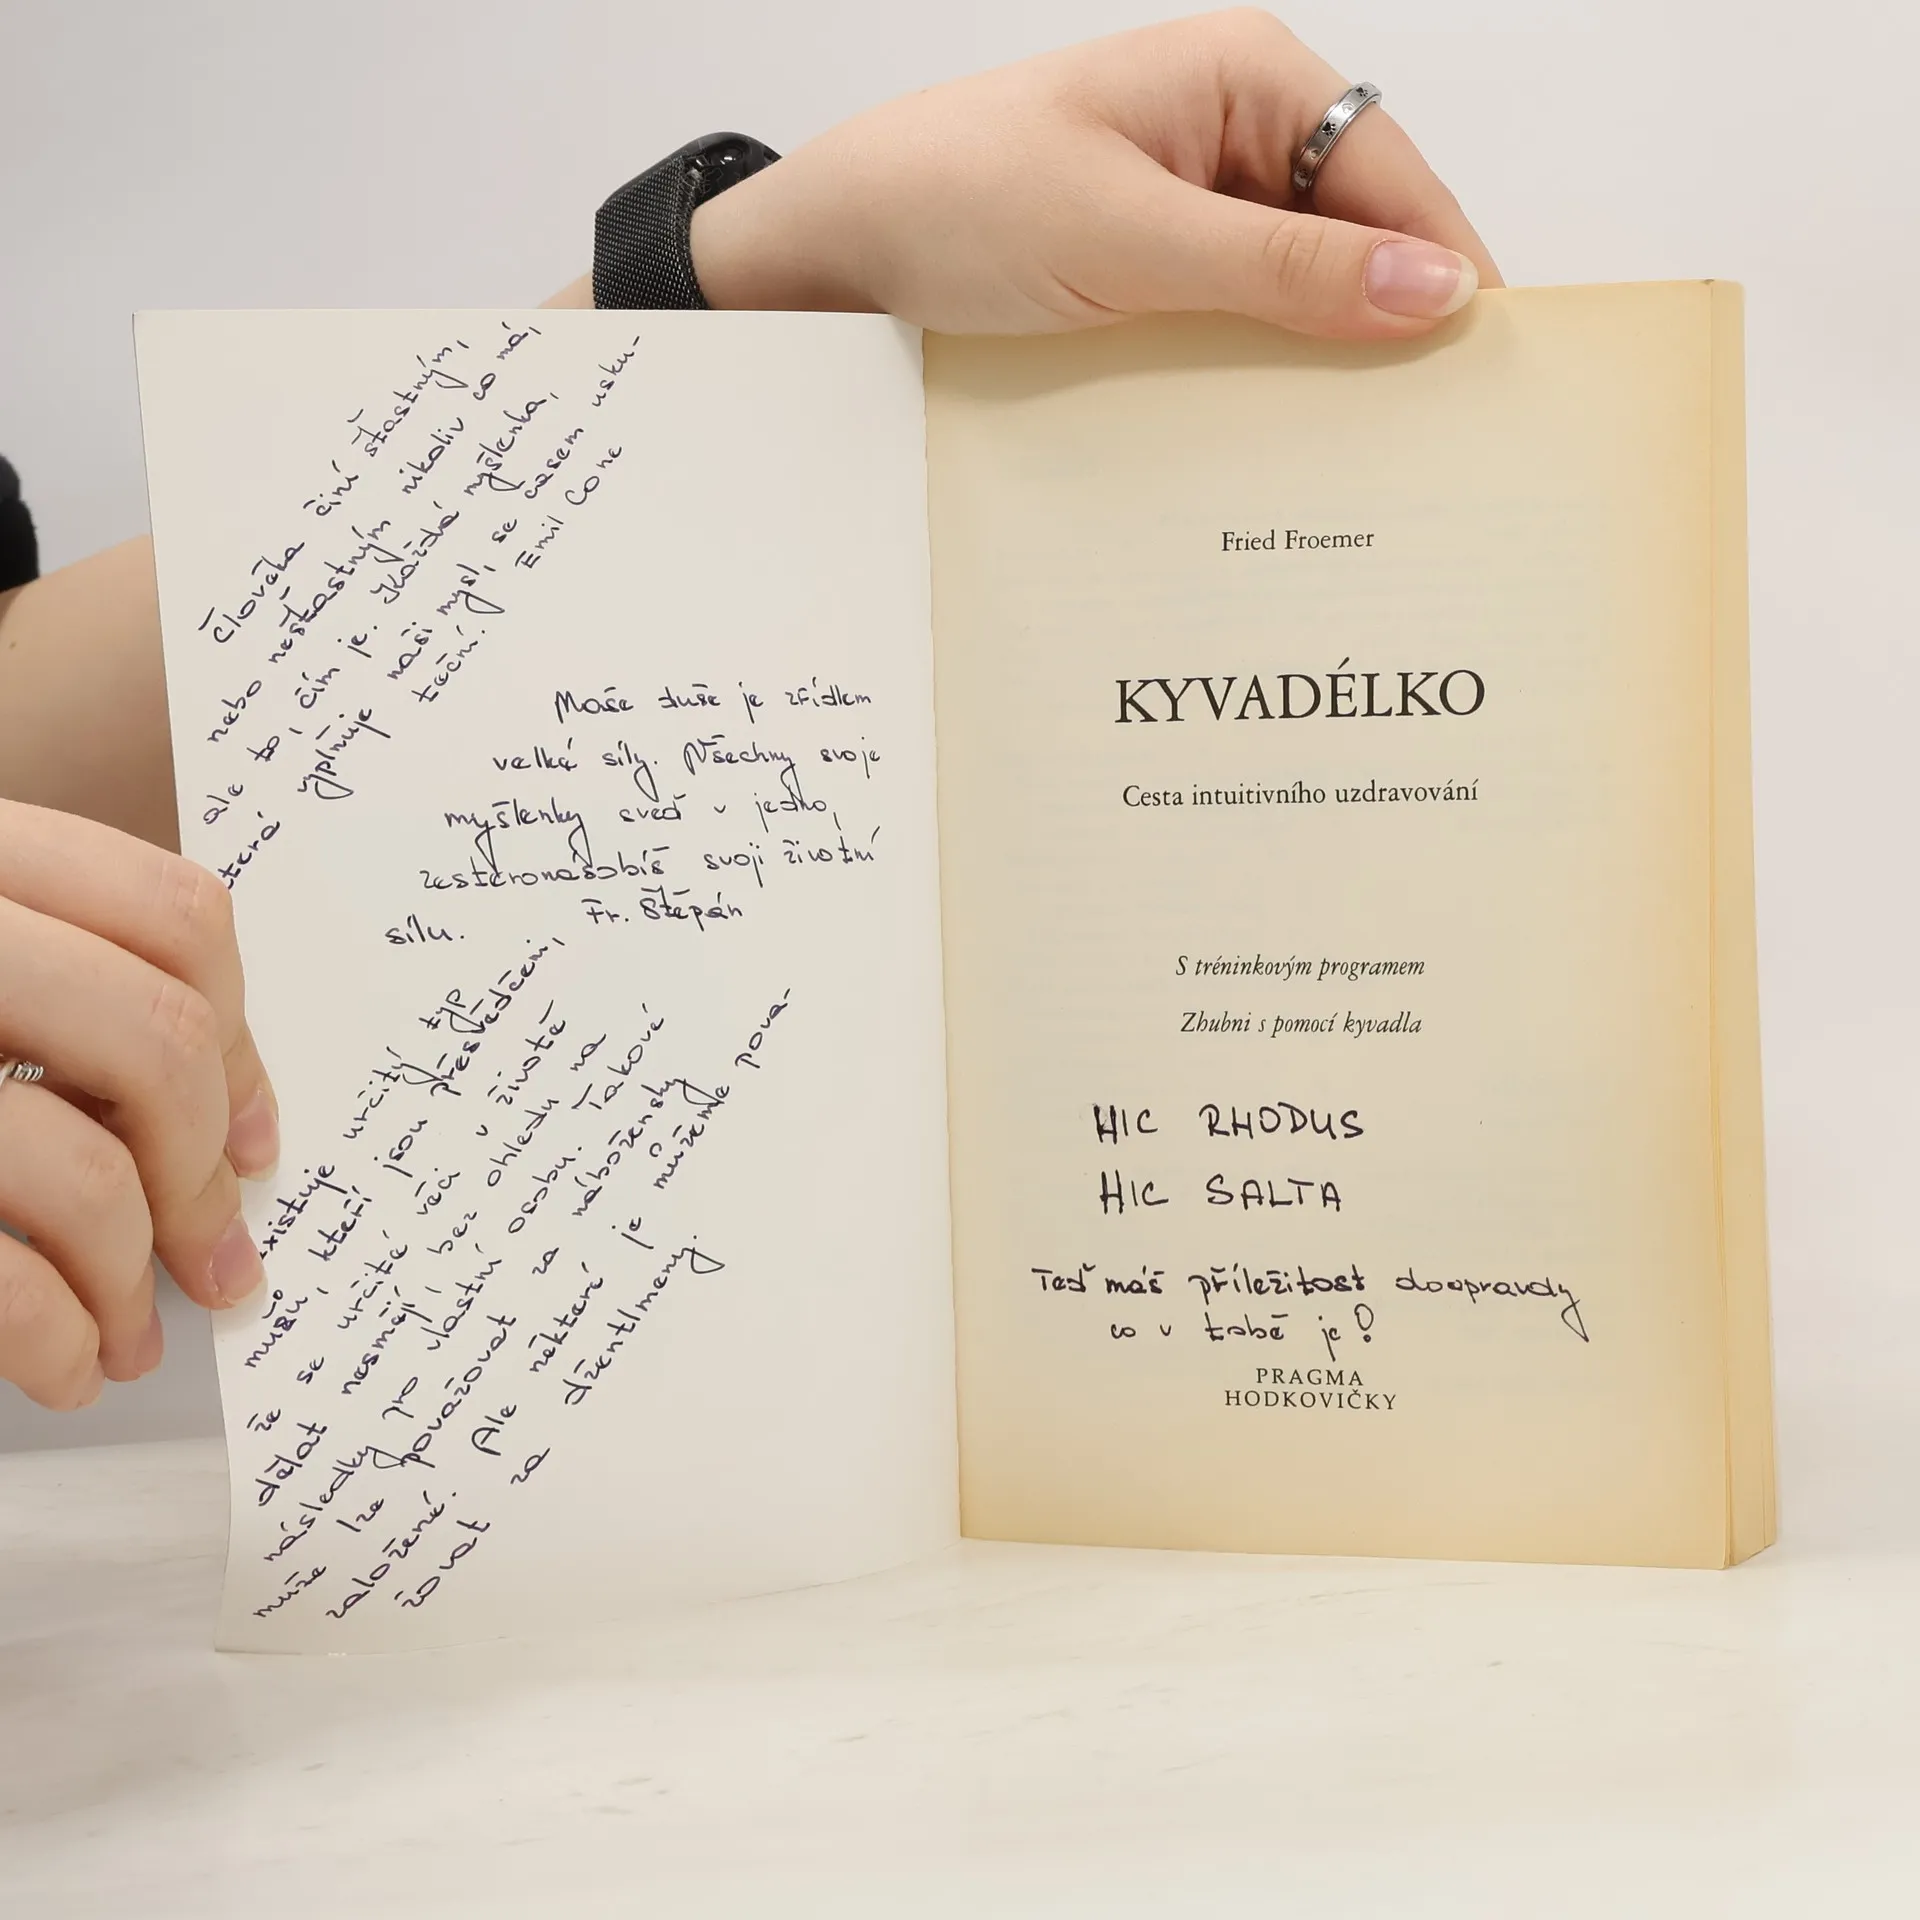 Člověka činí šťastným,
nebo nešťastným nikoliv co má,
ale to, čím je. Každá myšlenka,
která vyplňuje naši mysl, se časem usku-
teční. Emil Coue
Naše duše je zřídlem
velké síly. Všechny svoje
myšlenky sveď v jedno,
zesteronásobíš svoji životní
sílu. Fr. Štěpán
existuje určitý typ
mužů, kteří jsou přesvědčeni,
že se určité věci v životě
dělat nesmějí, bez ohledu na
následky pro vlastní osobu. Takové
muže lze považovat za nábožensky
založené. Ale některé je můžeme pova-
žovat za džentlmeny.
Fried Froemer
KYVADÉLKO
Cesta intuitivního uzdravování
S tréninkovým programem
Zhubni s pomocí kyvadla
HIC RHODUS
HIC SALTA
Teď máš příležitost doopravdy
co v tobě je!
PRAGMA
HODKOVIČKY